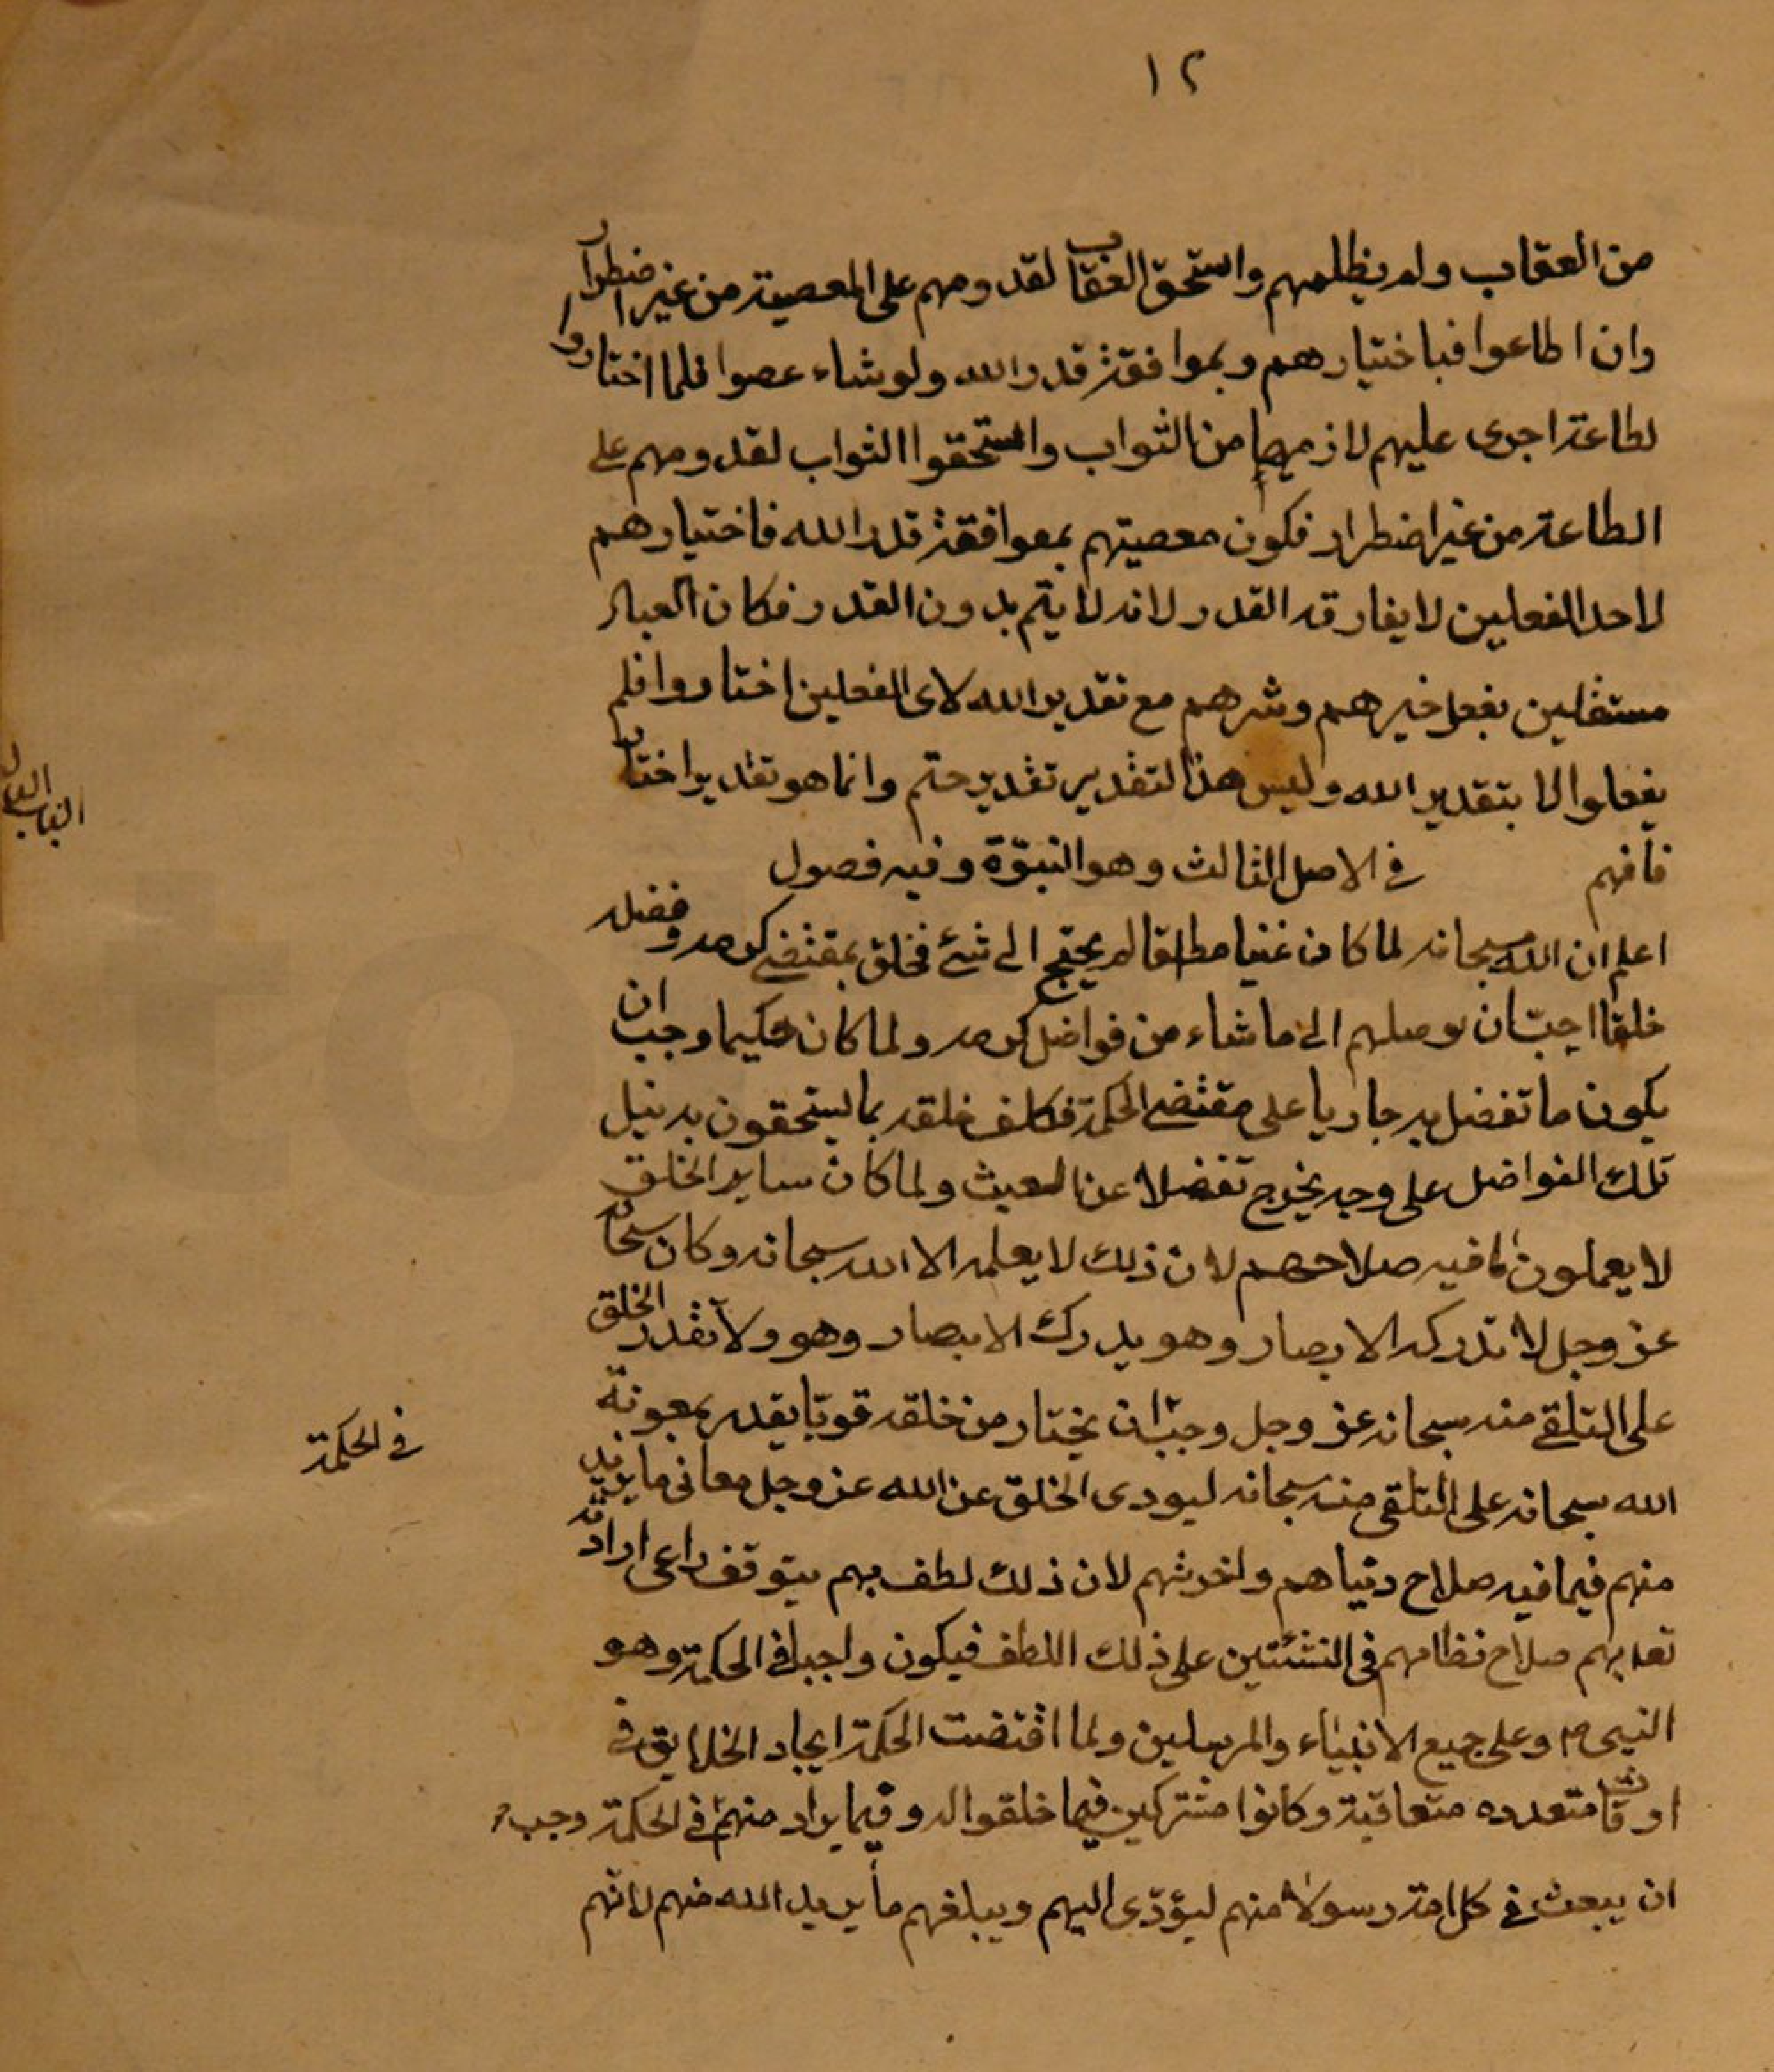 ١٢
من العقاب ولم يظلمهم واستحق العقاب لقدومهم على المعصية من غير اضطرار
وان اطاعوا فباختيارهم وبموافقة قدر الله ولو شاء عصوا فلما اختاروا
لطاعة اجرى عليهم لازمها من الثواب واستحقوا الثواب لقدومهم على
الطاعة من غير اضطرار فكون معصيتهم بموافقة قدر الله فاختيارهم
لاحد الفعلين لا يفارقه القدر لانه لا يتم بدون القدر فكان العباد
مستقلين بفعل خيرهم وشرهم مع تقدير الله لاى الفعلين اختاروا فلم
يفعلوا الا بتقدير الله وليس هذا لتقدير تقدير حتم وانما هو تقدير اختيار
فافهم في الاصل الثالث وهو النبوّة وفيه فصول
اعلم ان الله سبحانه لما كان غنيا مطلقا لم يحتج الى شئ فخلق بمقتضى كرمه وفضله
خلقا احبّ ان يوصلهم الى ما شاء من فواضل كرمه ولما كان حكيما وجب ان
يكون ما تفضل به جاريا على مقتضى الحكمة فكلف خلقه بما يستحقون به نيل
تلك الفواضل على وجه يخرج تفضلا عن العبث ولما كان ساير الخلق
لا يعملون ما فيه صلاحهم لان ذلك لا يعلمه الا الله سبحانه وكان سبحانه
عز وجل لا تدركه الابصار وهو يدرك الابصار وهو ولا تقدر الخلق
على التلقي منه سبحانه عز وجل وجب ان يختار من خلقه قويّا يقدر بمعونة
في الحكمة
الله سبحانه على التلقي منه سبحانه ليودى الخلق عن الله عز وجل معانى ما يريد
منهم فيما فيه صلاح دنياهم واخرتهم لان ذلك لطف بهم يتوقف
بهم صلاح نظامهم في النشئتين على ذلك اللطف فيكون واجبا في الحكمة وهو
النبي ص وعلى جميع الانبياء والمرسلين ولما اقتضت الحكمة ايجاد الخلايق في
اوقات متعدده متعاقبة وكانوا مشتركين فيما خلقوا له وفيما يراد منهم في الحكمة وجب
ان يبعث في كل امة رسولا منهم ليؤدّى اليهم ويبلغهم ما يريد الله منهم لانهم